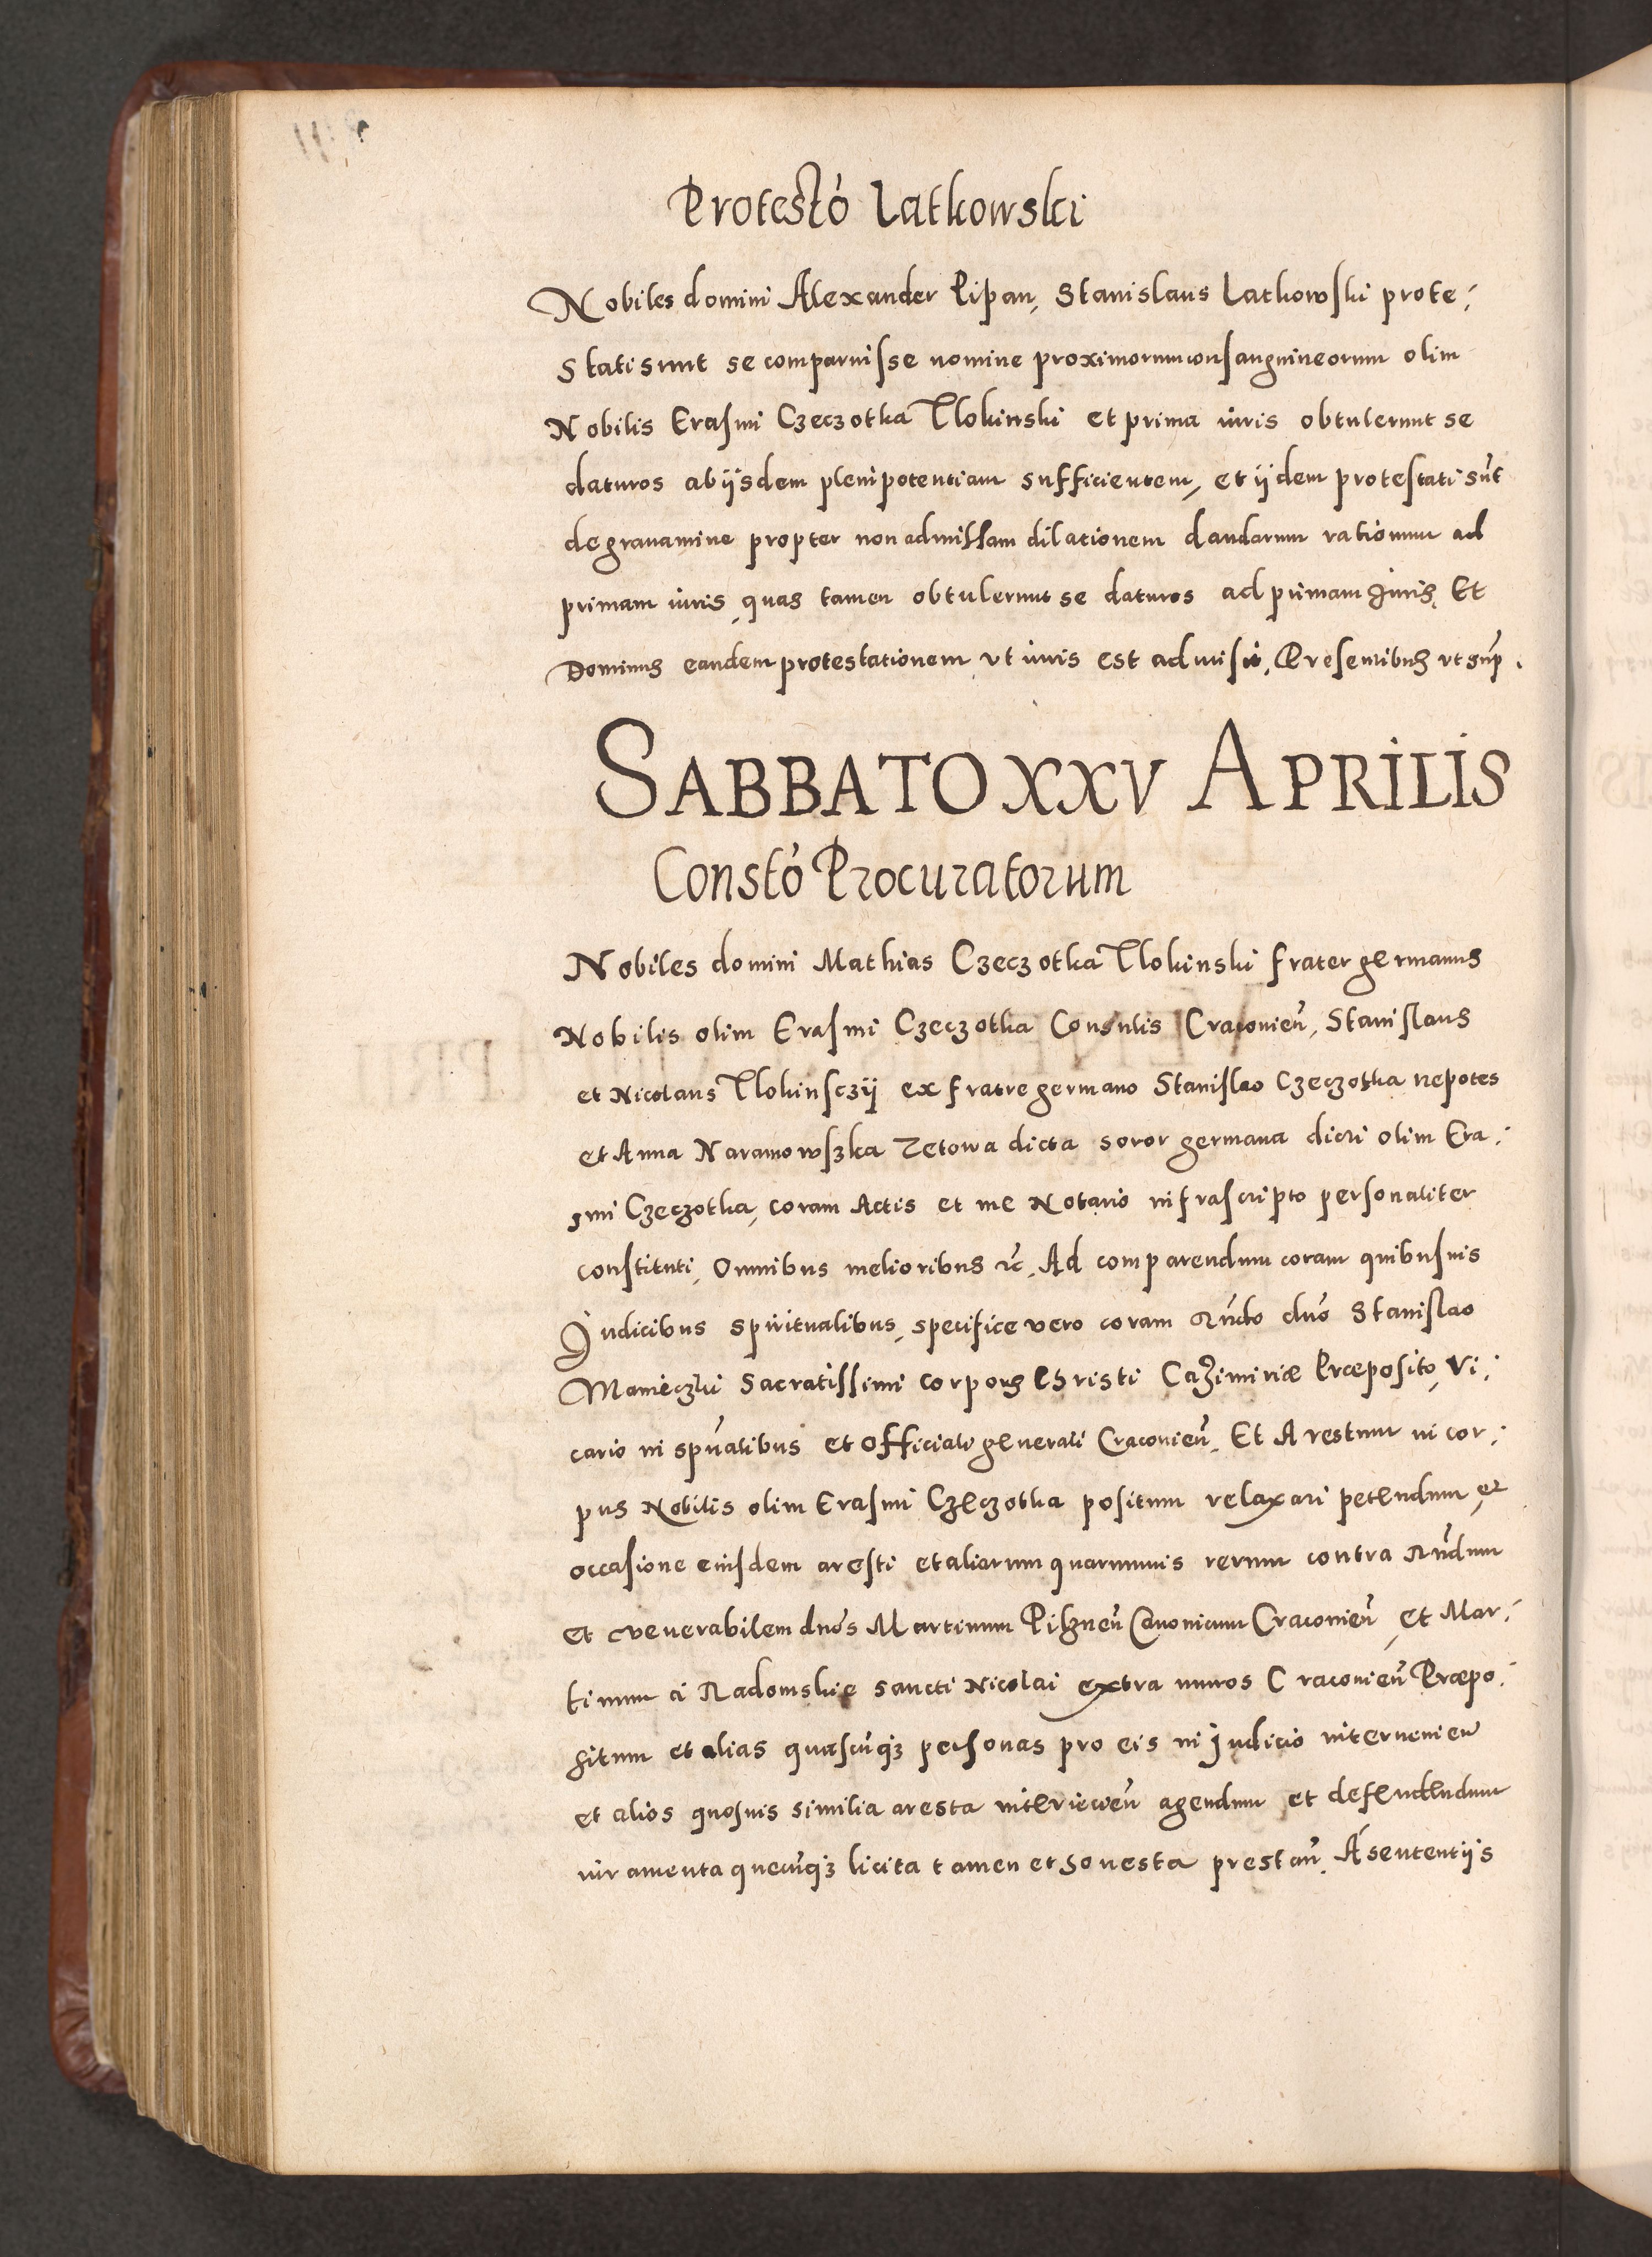 Protestó Latkowski
Nobiles domini Alexander Pipan, Stanislaus Latkowski prote:
stati sunt se comparuisse nomine proximorum consanguineorum olim
Nobilis Erasmi Czeczotka Tlokinski et prima iuris obtulerunt se
daturos ab ijsdem plenipotentiam sufficientem, et ijdem protestati sūt
de grauamine propter non admissam dilationem dandarum rationum ad
primam iuris, quas tamen obtulerunt se daturos ad primam Juris, Et
Dominus eandem protestationem vt iuris est admisit, Presentibus vt sup̄.
SABBATO XXV APRILIS
Constó Procuratorum
Nobiles domini Mathias Czeczotka Tlokinski frater germanus
Nobilis olim Erasmi Czeczotka Consulis Cracouień, Stanislaus
et Nicolaus Tlokinsczij ex fratre germano Stanislao Czeczotka nepotes
et Anna Naramowszka Zetowa dicta soror germana dicti olim Era:
smi Czeczotka, coram Actis et me Notario infrascripto personaliter
constituti, Omnibus melioribus &c. Ad comparendum coram quibusuis
Judicibus spiritualibus, specifice vero coram Rndo dno Stanislao
Manieczki Sacratissimi Corporis Christi Cazimiriæ Præposito, Vi:
cario in spūalibus et Officiali generali Cracouień, Et Arestum in cor:
pus Nobilis olim Erasmi Czeczotka positum relaxari petendum, et
occasione eiusdem aresti et aliarum quarumuis rerum contra Rndum
et venerabilem dnos Martinum Pilzneń Canonicum Cracouień, et Mar:
tinum á Radomskie sancti Nicolai extra muros Cracouień Præpo:
situm et alias quascūqz personas pro eis in Judicio interuenień
et alios quosuis similia aresta interiecień agendum et defendendum
iuramenta quecūqz licita tamen et honesta prestań. Á sententijs